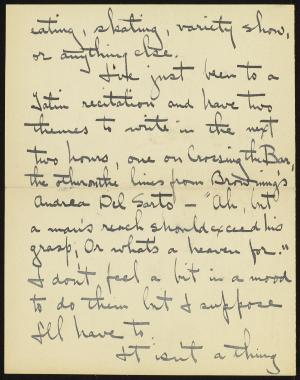 eating, skating, variety show,
or anything else.
I've just been to a
Latin recitation and have two
themes to write in the next
two hours, one on Crossing the Bar,
the other on the lines from Browning's
Andrea Del Sarto - "Ah, but
a man's reach should exceed his
grasp, Or what's a heaven for."
I don't feel a bit in a mood
to do them but I suppose
I'll have to.
It isn't a thing